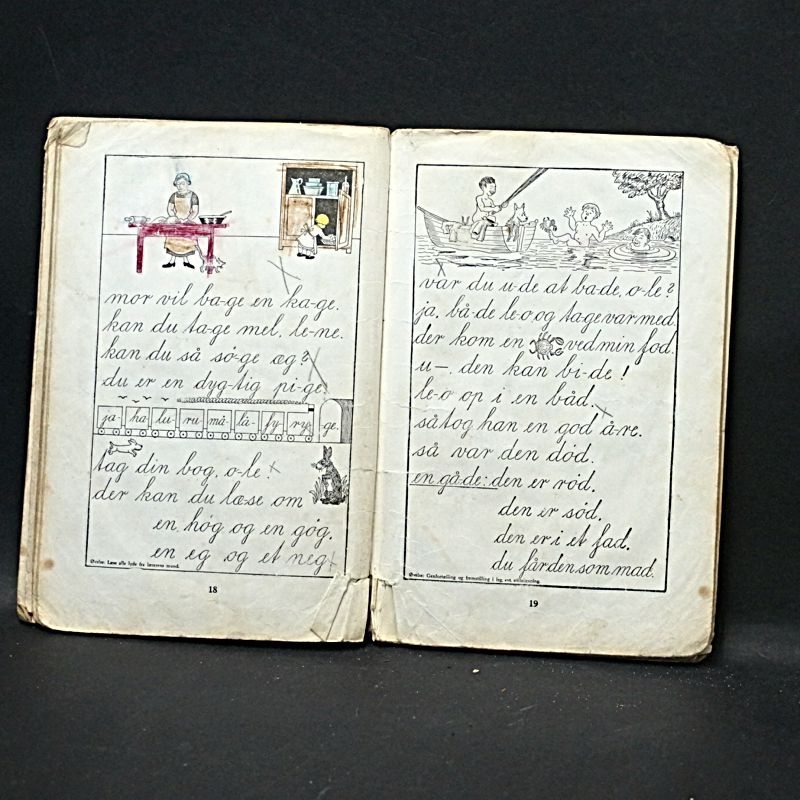 mor vil ba-ge en ka-ge.
kan du ta-ge mel, le-ne.
kan du så sö-ge æg?
du er en dyg-tig pi-ge.
ja- ha- lu- ru- må- lå- fy- ry- ge.
tag din bog, o-le.
der kan du læ-se om
en hög og en gög,
en eg og et neg.
Øvelse: Læse alle lyde fra lærerens mund.
18
var du u-de at ba-de, o-le?
ja, bå-de le-o og tage var med.
der kom en ved min fod.
u—, den kan bi-de!
le-o op i en båd,
så tog han en god å-re.
så var den död.
en gå-de: den er röd,
den er söd,
den er i et fad,
du får den som mad.
Øvelse: Genfortælling og fremstilling i leg, evt. stilskrivning.
19